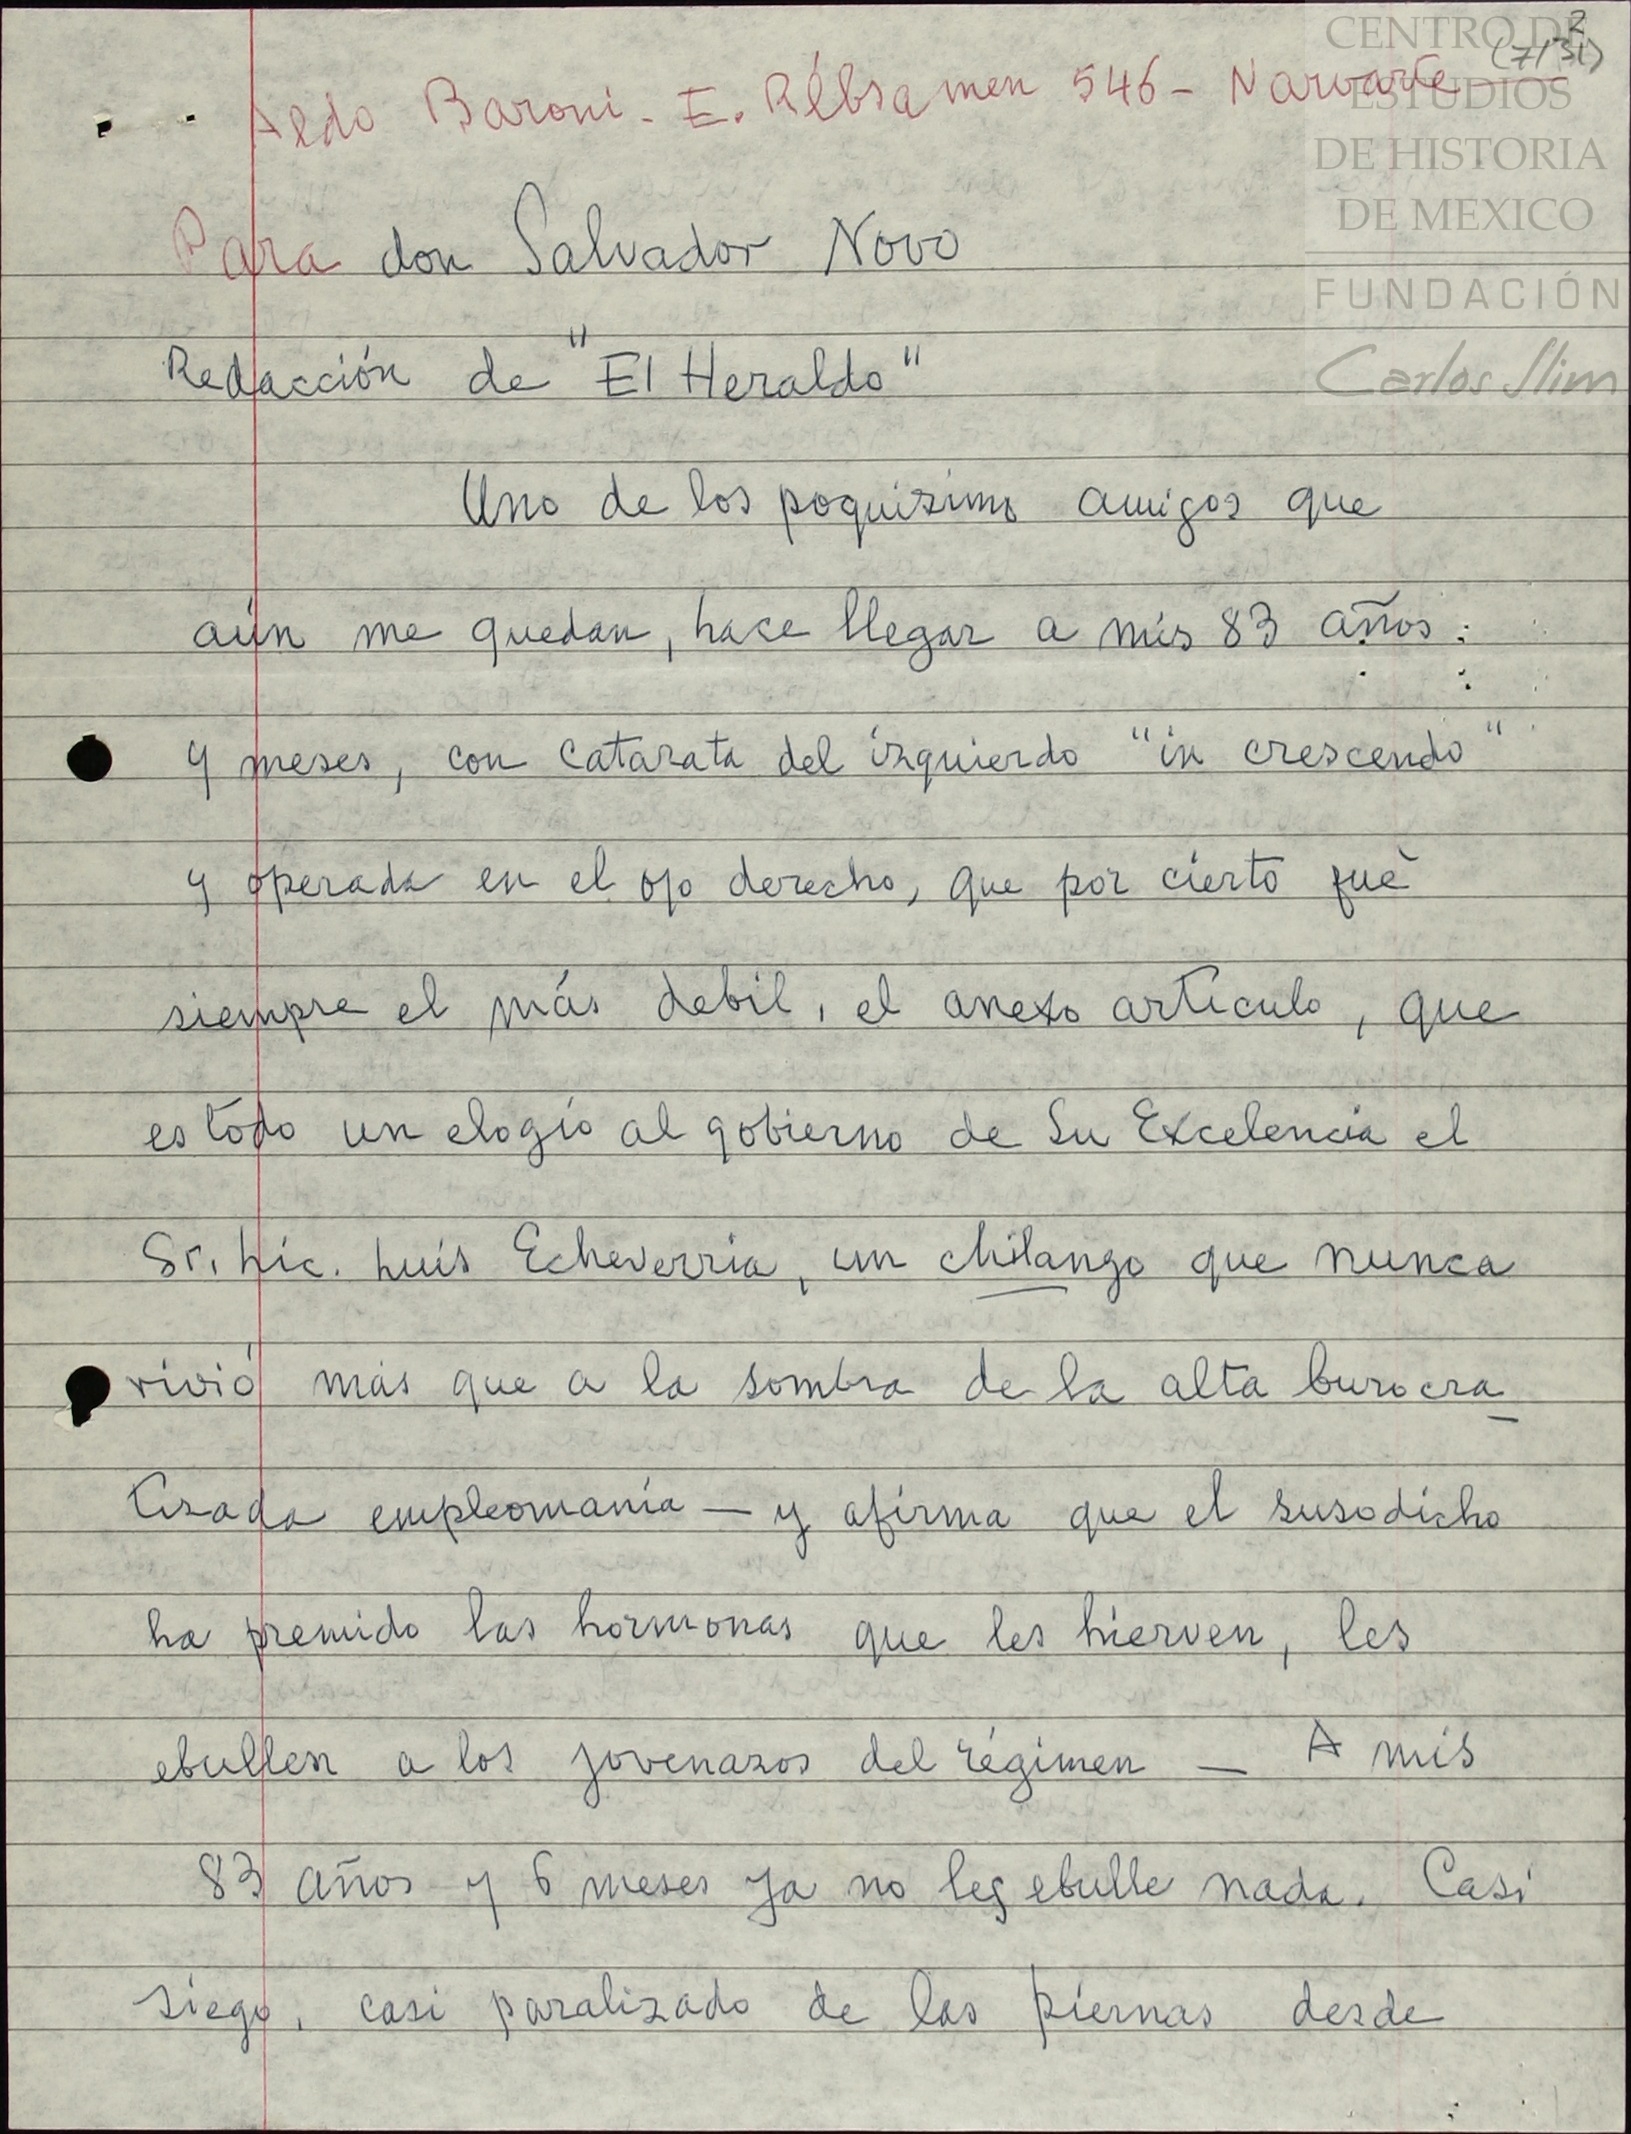 2
(7/31)
CENTRO DE
ESTUDIOS
DE HISTORIA
DE MEXICO
FUNDACIÓN
Carlos Slim
Aldo Baroni - E. Rébsamen 546 - Narvarte
Para don Salvador Novo
Redacción de "El Heraldo"
Uno de los poquisimos amigos que
aún me quedan, hace llegar a mis 83 años
y meses, con catarata del izquierdo "in crescendo"
y operada en el ojo derecho, que por cierto fuè
siempre el más debil, el anexo articulo, que
es todo un elogio al gobierno de Su Excelencia el
Sr. Lic. Luis Echeverria, un chilango que nunca
vivió más que a la sombra de la alta burocra_
tizada empleomanía — y afirma que el susodicho
ha premido las hormonas que les hierven, les
ebullen a los jovenazos del régimen — A mis
83 años y 6 meses ya no les ebulle nada. Casi
siego, casi paralizado de las piernas desde